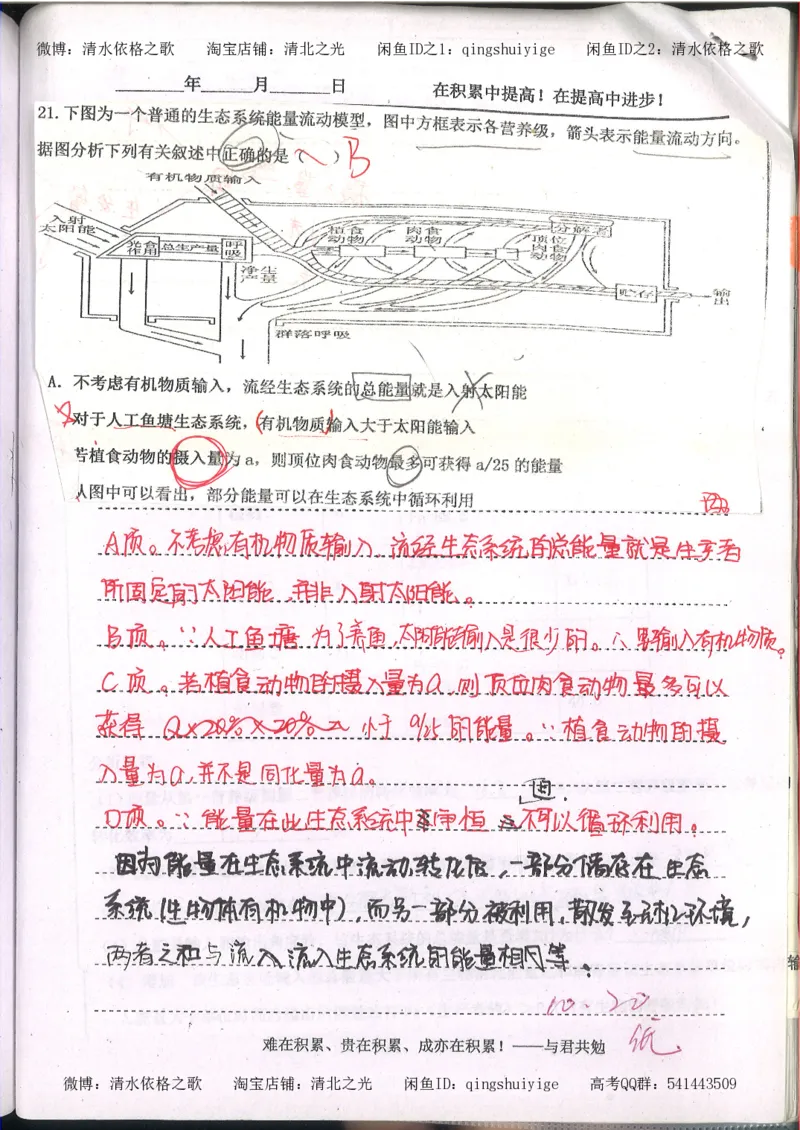 微博：清水依格之歌 淘宝店铺：清北之光 闲鱼ID之1：qingshuiyige 闲鱼ID之2：清水依格之歌
年 月 日 在积累中提高！在提高中进步！
21.下图为一个普通的生态系统能量流动模型，图中方框表示各营养级，箭头表示能量流动方向。
据图分析下列有关叙述中正确的是（ ）B
有机物质输入
入射
太阳能
光合
作用
总生产量
呼
吸
净生
产量
植食
动物
肉食
动物
顶位
肉食
动物
分解者
贮存
输
出
群落呼吸
A．不考虑有机物质输入，流经生态系统的总能量就是入射太阳能
对于人工鱼塘生态系统，有机物质输入大于太阳能输入
若植食动物的摄入量为a，则顶位肉食动物最多可获得a/25的能量
从图中可以看出，部分能量可以在生态系统中循环利用
A项。不考虑有机物质输入 流经生态系统的总能量就是生产者
所固定的太阳能，并非入射太阳能。
B项。∵人工鱼塘 为了养鱼，太阳能输入是很少的。∴要输入有机物质。
C项。若植食动物的摄入量为a，则顶位肉食动物最多可以
获得 a×20%×20% 小于 a/25的能量。∵植食动物的摄
入量为a，并不是同化量为a。
D项。∵能量在此生态系统中 不可以循环利用。
因为能量在生态系统中流动转化后，一部分储存在生态
系统（生物体有机物中），而另一部分被利用，散发至无机环境，
两者之和与流入 流入生态系统的能量相等。
10 20
低
难在积累、贵在积累、成亦在积累！——与君共勉
微博：清水依格之歌 淘宝店铺：清北之光 闲鱼ID：qingshuiyige 高考QQ群：541443509